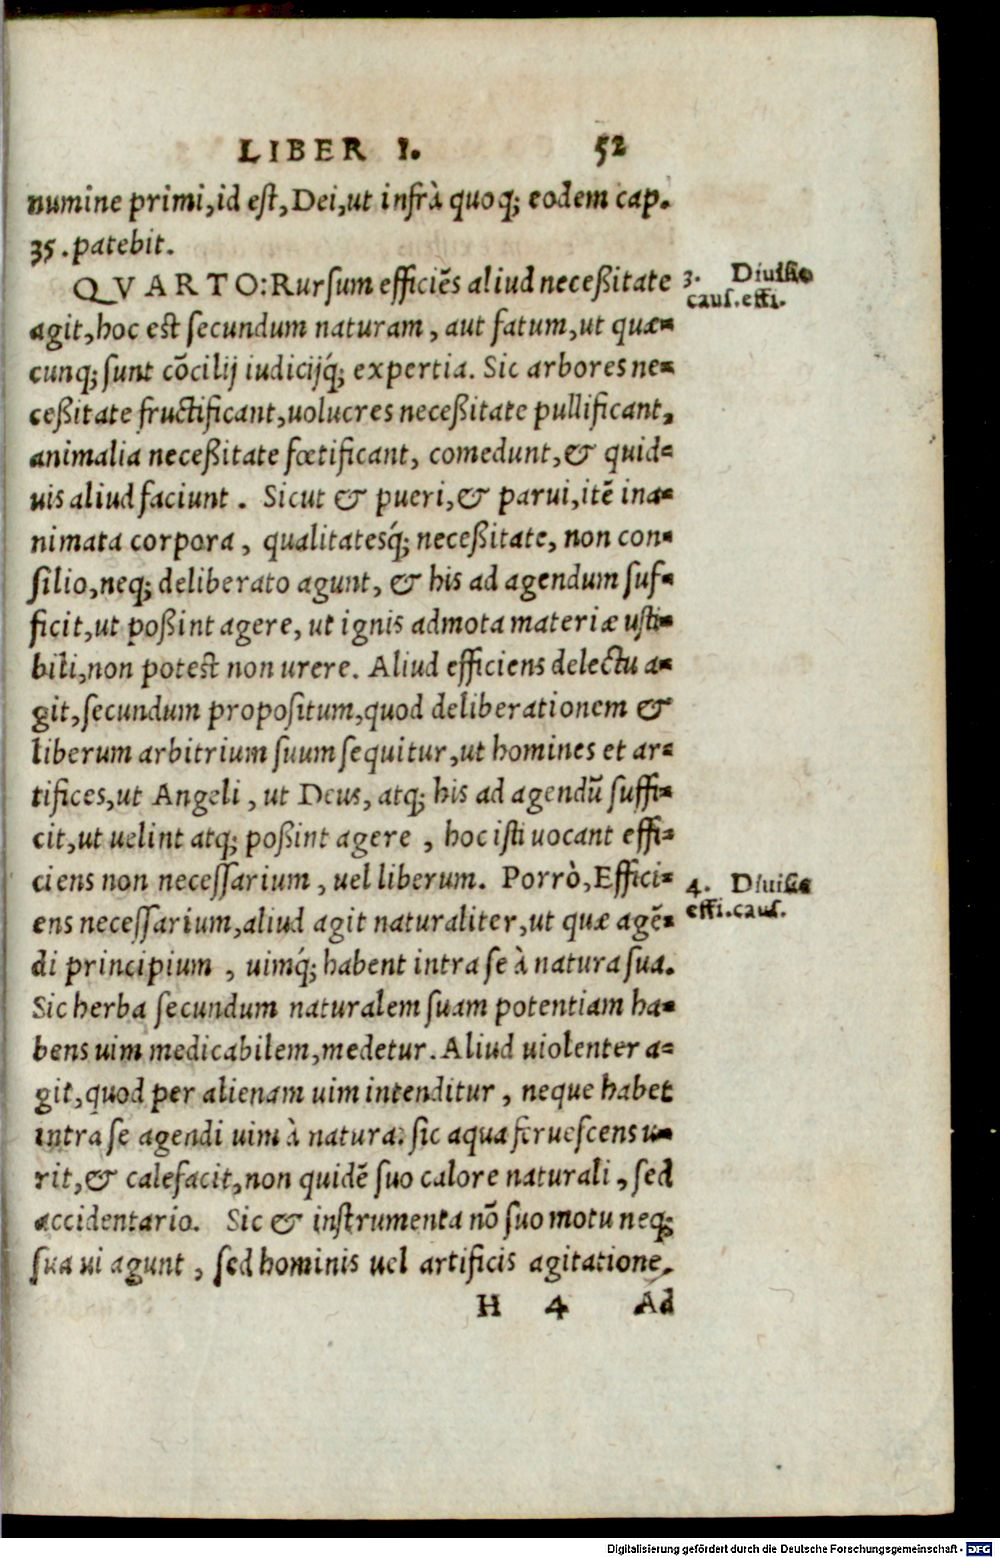 LIBER I. 52
numine primi, id est, Dei, ut infrà quoq; eodem cap.
35. patebit.
QVARTO: Rursum efficiēs aliud neceßitate
3. Diuisio
caus. effi.
agit, hoc est secundum naturam, aut fatum, ut quæ-
cunq; sunt cōcilij iudicijq́; expertia. Sic arbores ne-
ceßitate fructificant, uolucres neceßitate pullificant,
animalia neceßitate fœtificant, comedunt, & quid-
uis aliud faciunt. Sicut & pueri, & parui, itē ina-
nimata corpora, qualitatesq́; neceßitate, non con-
silio, neq; deliberato agunt, & his ad agendum suf-
ficit, ut poßint agere, ut ignis admota materiæ usti-
bili, non potest non urere. Aliud efficiens delectu a-
git, secundum propositum, quod deliberationem &
liberum arbitrium suum sequitur, ut homines et ar-
tifices, ut Angeli, ut Deus, atq; his ad agendū suffi-
cit, ut uelint atq; poßint agere, hoc isti uocant effi-
ciens non necessarium, uel liberum. Porrò, Effici-
4. Diuisio
effi. caus.
ens necessarium, aliud agit naturaliter, ut quæ agē-
di principium, uimq́; habent intra se à natura sua.
Sic herba secundum naturalem suam potentiam ha-
bens uim medicabilem, medetur. Aliud uiolenter a-
git, quod per alienam uim intenditur, neque habet
intra se agendi uim à natura: sic aqua feruescens u-
rit, & calefacit, non quidē suo calore naturali, sed
accidentario. Sic & instrumenta nō suo motu neq;
sua ui agunt, sed hominis uel artificis agitatione.
H 4 Ad
Digitalisierung gefördert durch die Deutsche Forschungsgemeinschaft - DFG